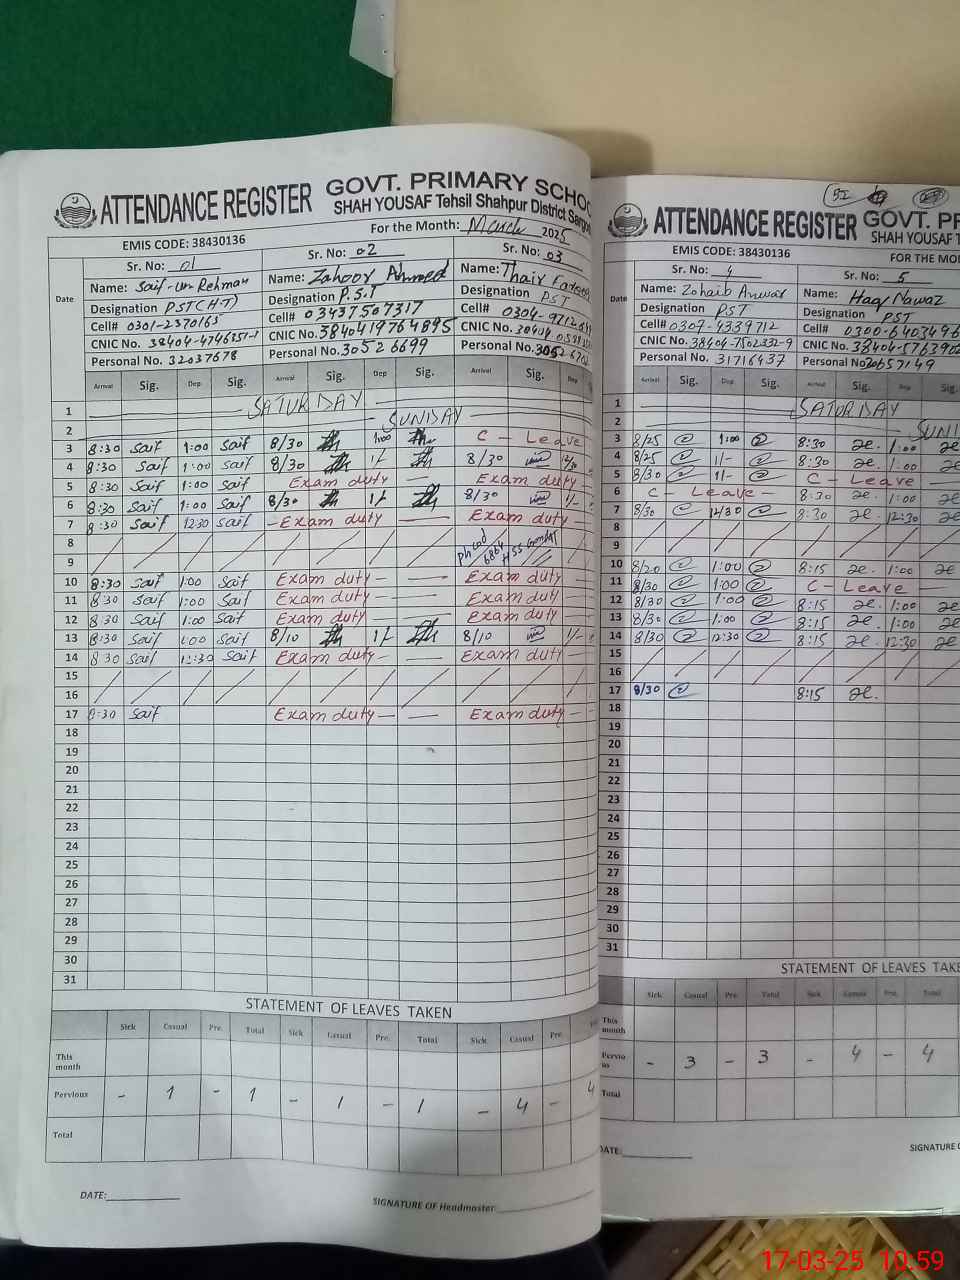 ATTENDANCE REGISTER GOVT. PRIMARY SCHOO
SHAH YOUSAF Tehsil Shahpur District Sargo
EMIS CODE: 38430136 For the Month: March 2025
Sr. No: 01 Sr. No: 02 Sr. No: 03
Date
Name: Saif-ur-Rehman Name: Zahoor Ahmed Name:
Designation PST(HT) Designation P.S.T Designation PST
Cell# 0301-2370165 Cell# 03437507317 Cell#
CNIC No. CNIC No. 3840419764895 CNIC No.
Personal No. 32037678 Personal No. 30526699 Personal No.
Arrival Sig. Dep Sig. Arrival Sig. Dep Sig. Arrival Sig. Dep
1 SATURDAY
2 SUNDAY
3 8:30 Saif 1:00 Saif 8/30 1:00 C - Leave
4 8:30 Saif 1:00 Saif 8/30 1/- 8/30 12/30
5 8:30 Saif 1:00 Saif Exam duty Exam duty
6 8:30 Saif 1:00 Saif 8/30 1/- 8/30 1/-
7 8:30 Saif 1230 Saif - Exam duty — Exam duty -
8
9
10 8:30 Saif 1:00 Saif Exam duty - — Exam duty -
11 8:30 Saif 1:00 Saif Exam duty - — Exam duty -
12 8 30 Saif 1:00 Saif Exam duty — Exam duty -
13 8:30 Saif 1:00 Saif 8/10 1/- 8/10 1/-
14 8 30 Saif 12:30 Saif Exam duty - — Exam duty -
15
16
17 8:30 Saif Exam duty - — Exam duty -
18
19
20
21
22
23
24
25
26
27
28
29
30
31
STATEMENT OF LEAVES TAKEN
Sick Casual Pre. Total Sick Casual Pre. Total Sick Casual Pre.
This month
Pervious - 1 - 1 - 1 - 1 - 4 - 4
Total
DATE:
SIGNATURE OF Headmaster:
ATTENDANCE REGISTER GOVT. PR
SHAH YOUSAF T
EMIS CODE: 38430136 FOR THE MO
Sr. No: 4 Sr. No: 5
Date
Name: Zohaib Anwar Name: Haq Nawaz
Designation PST Designation PST
Cell# 0307-4339712 Cell# 0300-6403496
CNIC No. 38404-7502332-9 CNIC No. 38404-5763902
Personal No. 31716437 Personal No 30657149
Arrival Sig. Dep Sig. Arrival Sig. Dep Sig.
1 SATURDAY
2 SUNI
3 8/25 1:00 8:30 1:00
4 8/25 1/- 8:30 1:00
5 8/30 1/- C - Leave
6 C - Leave - 8:30 1:00
7 8/30 12/30 8:30 12:30
8
9
10 8/20 1:00 8:15 1:00
11 8/30 1:00 C - Leave
12 8/30 1:00 8:15 1:00
13 8/30 1:00 8:15 1:00
14 8/30 12:30 8:15 12:30
15
16
17 8/30 8:15
18
19
20
21
22
23
24
25
26
27
28
29
30
31
STATEMENT OF LEAVES TAKE
Sick Casual Pre. Total Sick Casual Pre. Total
This month
Pervious - 3 - 3 - 4 - 4
Total
DATE:
SIGNATURE O
17-03-25 10.59